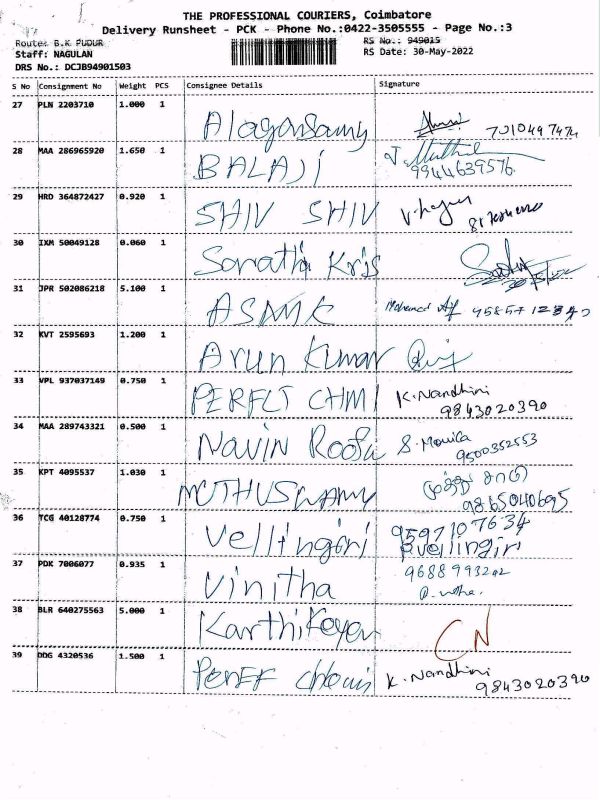 THE PROFESSIONAL COURIERS, Coimbatore
Delivery Runsheet - PCK - Phone No.:0422-3505555 - Page No.:3
Route: B.K PUDUR
RS No.: 949015
Staff: NAGULAN
RS Date: 30-May-2022
DRS No.: DCJB94901503
S No Consignment No Weight PCS Consignee Details Signature
27 PLN 2203710 1.000 1 Alagarsamy
28 MAA 286965920 1.650 1 BALAJI 9944639576
29 HRD 364872427 0.920 1 SHIV SHIV
30 IXM 50049128 0.060 1 Sarathi Kris
31 JPR 502086218 5.100 1 ASMK Mohamed
32 KVT 2595693 1.200 1 Arun Kumar
33 VPL 937037149 0.750 1 PERFCT CHMI K. Nandhini
9843020390
34 MAA 289743321 0.500 1 Navin Roofu S. Monica
9500352553
35 KPT 4095537 1.030 1 MUTHUSWAMY
9865040695
36 TCG 40128774 0.750 1 Vellingiri 9597107634
P.vellingiri
37 PDK 7006077 0.935 1 Vinitha 9688993242
38 BLR 640275563 5.000 1 Karthikeyen CN
39 DDG 4320536 1.500 1 K. Nandhini
9843020390